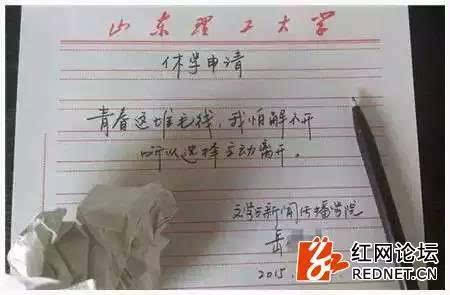 山东理工大学
休学申请
青春这堆毛线，我怕解不开
所以选择主动离开。
文学与新闻传播学院
岳
2015.
红网论坛
REDNET.CN